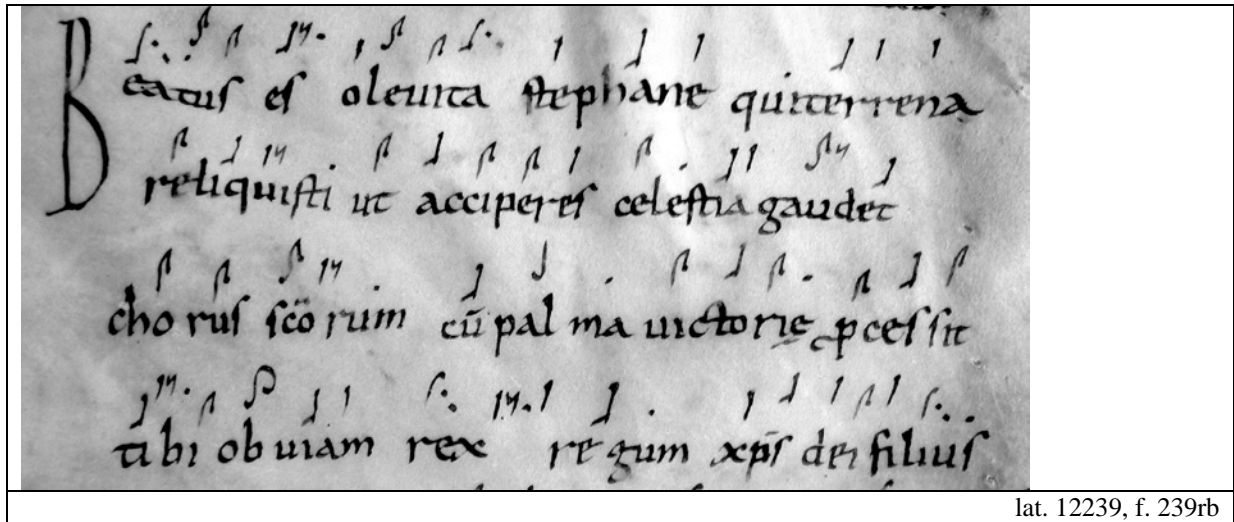 Beatus es oleuita stephane quiterrena
reliquisti ut acciperes celestia gaudet
cho rus sc̄o rum cū pal ma uictorię ꝓces sit
ti bi ob uiam rex re gum xp̄s dei filius
lat. 12239, f. 239rb